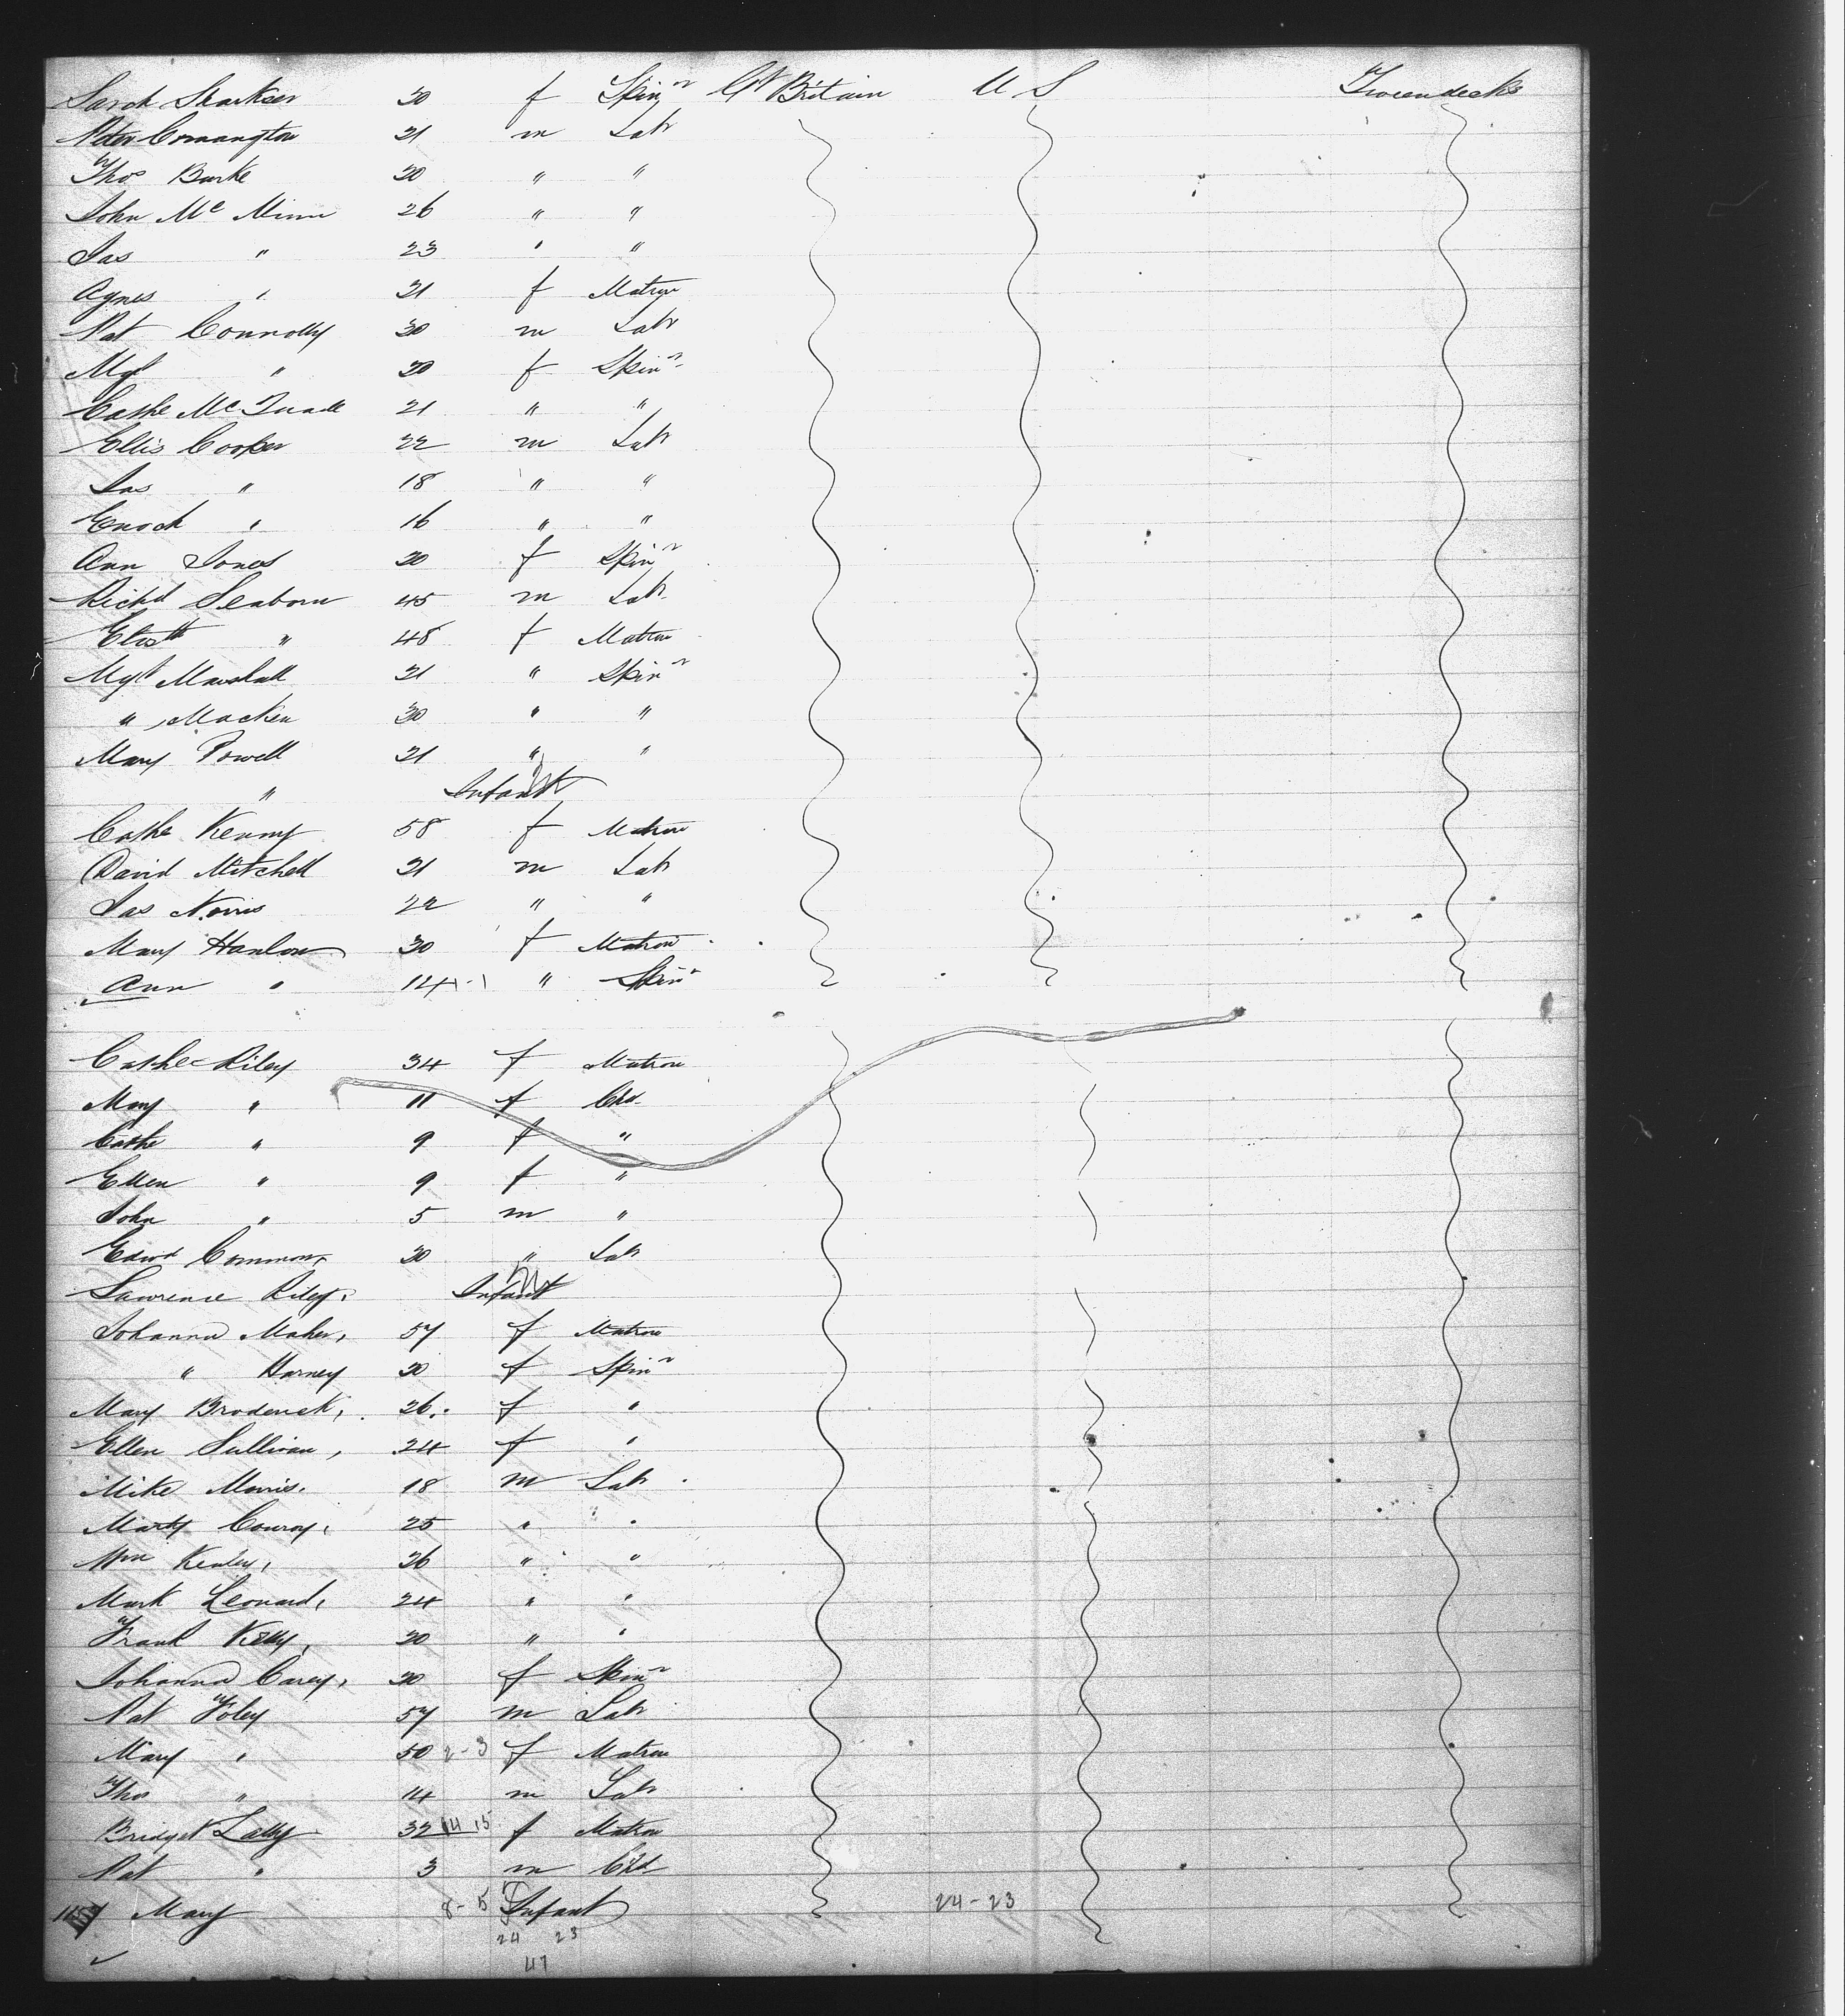 Sarah Sharkser 30 f Spinr Gt Britain U S Tweendecks
Peter Comangton 21 m Labr
Thos Burke 20 " "
John Mc Minn 26 " "
Jas " 23 " "
Agnes " 21 f Matron
Pat Connolly 30 m Labr
Mgt " 20 f Spinr
Cathe Mc Quade 21 " "
Ellis Cooper 22 m Labr
Jas " 18 " "
Enoch " 16 " "
Ann Jones 20 f Spinr
Richd Seaborn 45 m Labr
Elizth " 48 f Matron
Mgt Marshall 21 " Spinr
" Macken 30 " "
Mary Powell 21 " "
" Infant
Cathe Kenny 58 f Matron
David Mitchell 21 m Labr
Jas Norris 22 " "
Mary Hanlon 30 f Matron
Ann " 14 " Spinr
Cathe Riley 34 f Matron
Mary " 11 f Chd
Cathe " 9 f "
Ellen " 9 f "
John " 5 m "
Edwd Common 30 " Labr
Lawrence Riley, Infant
Johanna Maher, 57 f Matron
" Harney 20 f Spinr
Mary Broderick, 26 f "
Ellen Sullivan, 24 f "
Mike Morris. 18 m Labr
Marty Conroy, 25 " "
Wm Kenley, 26 " "
Mark Leonard, 24 " "
Frank Kelly, 20 " "
Johanna Carey, 20 f Spinr
Pat Foley 57 m Labr
Mary " 50 2-3 f Matron
Thos " 14 m Labr
Bridget Lally 32 14 15 f Matron
Pat " 3 m Chd
Mary 8-5 Infant 24-23
24 23
47